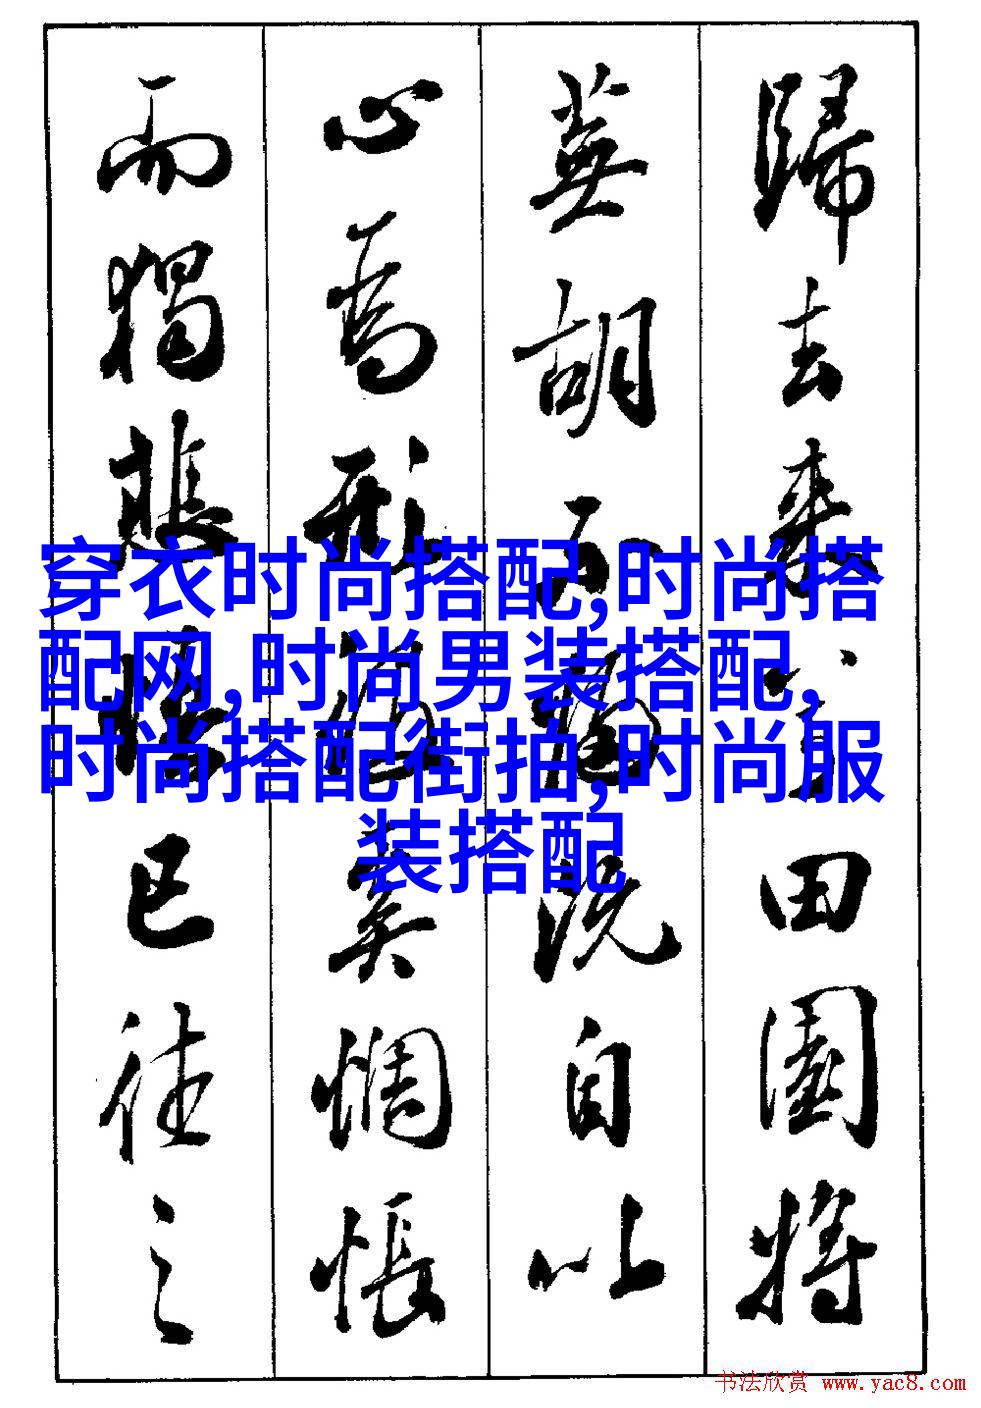 歸去來兮田園將
蕪胡不歸既自以
心為形役奚惆悵
而獨悲悟已往之
穿衣时尚搭配,时尚搭
配网,时尚男装搭配,
时尚搭配街拍,时尚服
装搭配
书法欣赏 www.yac8.com